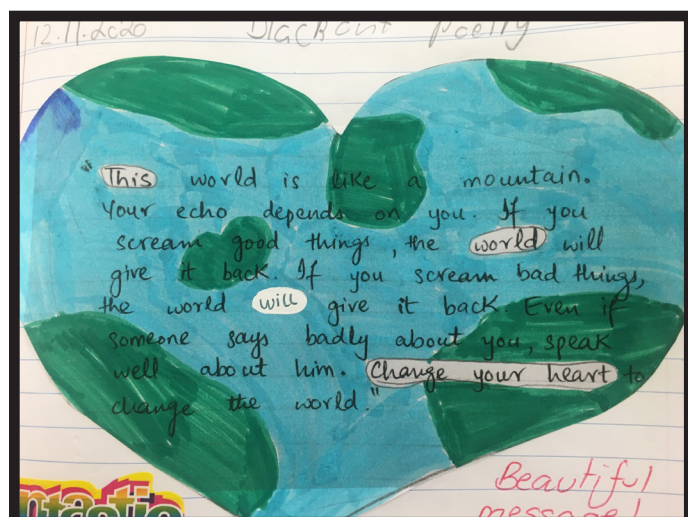 12.11.2020 Blackout Poetry
"This world is like a mountain.
Your echo depends on you. If you
scream good things, the world will
give it back. If you scream bad things,
the world will give it back. Even if
someone says badly about you, speak
well about him. Change your heart to
change the world."
Beautiful
message!
ntastic